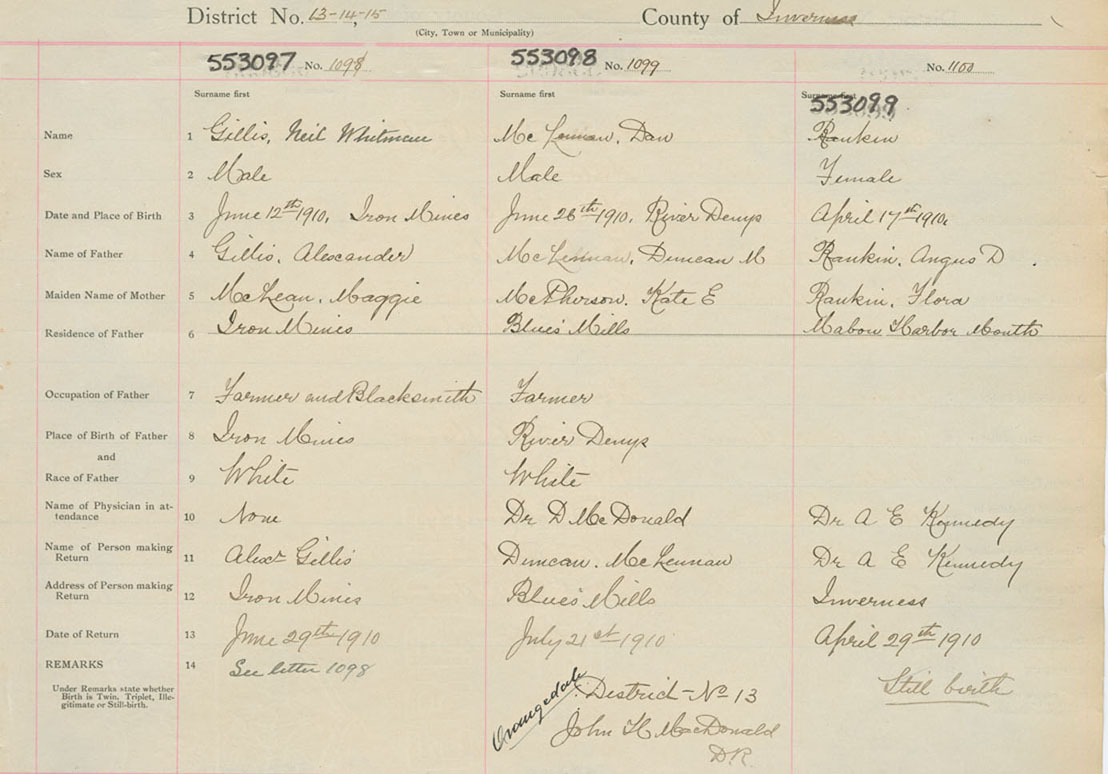 District No. 13-14-15 County of Inverness
(City, Town or Municipality)
553097 No. 1098 553098 No. 1099 No. 1100
Surname first Surname first Surname first
553099
Name 1 Gillis, Neil Whitman McLennan, Dan Rankin
Sex 2 Male Male Female
Date and Place of Birth 3 June 12th 1910, Iron Mines June 26th 1910, River Denys April 17th 1910,
Name of Father 4 Gillis, Alexander McLennan, Duncan M Rankin, Angus D
Maiden Name of Mother 5 McLean, Maggie McPherson, Kate E Rankin, Flora
Residence of Father 6 Iron Mines Blues Mills Mabou Harbor Mouth
Occupation of Father 7 Farmer and Blacksmith Farmer
Place of Birth of Father 8 Iron Mines River Denys
and
Race of Father 9 White White
Name of Physician in at-
tendance 10 None Dr D McDonald Dr A E Kennedy
Name of Person making
Return 11 Alexr Gillis Duncan. McLennan Dr A E Kennedy
Address of Person making
Return 12 Iron Mines Blues Mills Inverness
Date of Return 13 June 29th 1910 July 21st 1910 April 29th 1910
REMARKS 14 See letter 1098 Still birth
Under Remarks state whether
Birth is Twin, Triplet, Ille-
gitimate or Still-birth.
Orangedale District No 13
John H MacDonald
D.R.